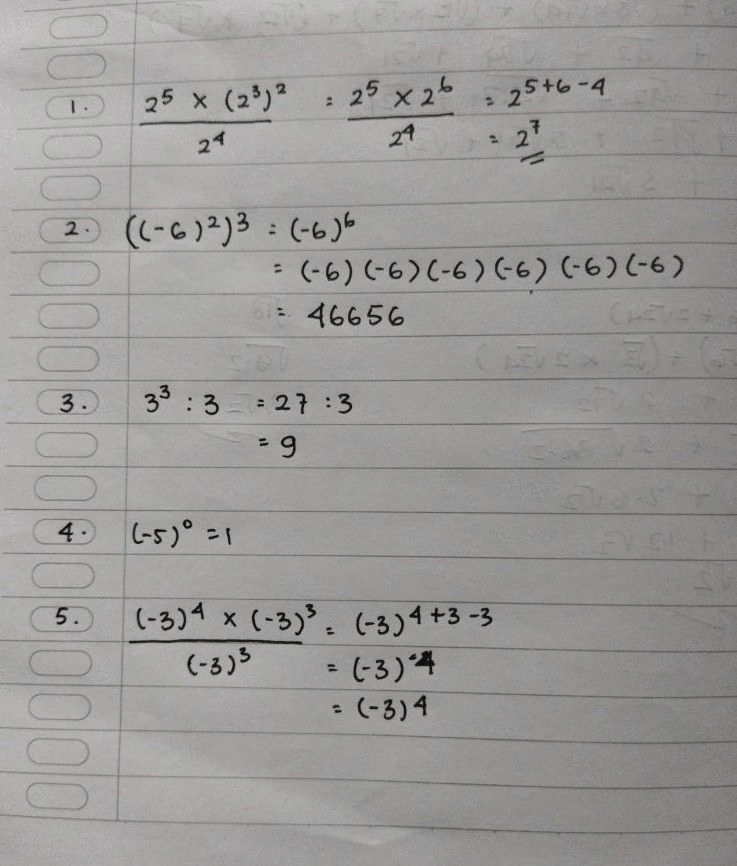 1. 2⁵ × (2³)² / 2⁴ = 2⁵ × 2⁶ / 2⁴ = 2⁵⁺⁶⁻⁴
= 2⁷
2. ((-6)²)³ = (-6)⁶
= (-6) (-6) (-6) (-6) (-6) (-6)
= 46656
3. 3³ : 3 = 27 : 3
= 9
4. (-5)⁰ = 1
5. (-3)⁴ × (-3)³ / (-3)³ = (-3)⁴⁺³⁻³
= (-3)⁴
= (-3)⁴